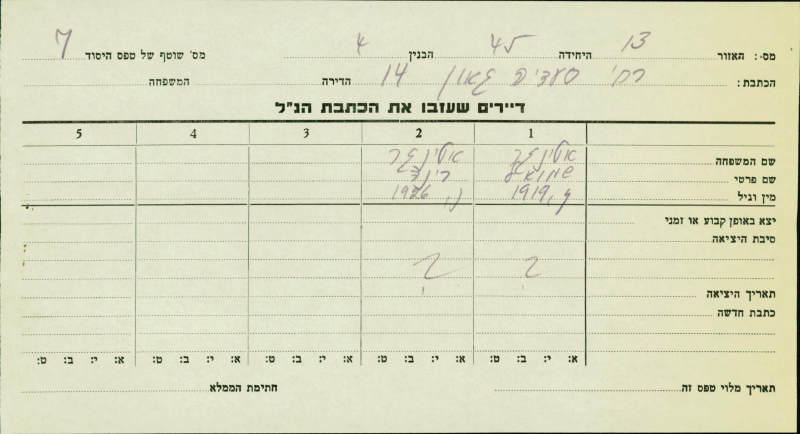 מס׳: האזור 13 היחידה 45 הבנין 4 מס׳ שוטף של טפס היסוד 7
הכתבת: רח׳ סעדיה גאון 14 הדירה המשפחה
דיירים שעזבו את הכתבת הנ״ל
1 2 3 4 5
שם המשפחה
שם פרטי שמואל
מין וגיל ז, 1919 נ, 1926
יצא באופן קבוע או זמני
סיבת היציאה
? ?
תאריך היציאה
כתבת חדשה
א: י: ב: ט: א: י: ב: ט: א: י: ב: ט: א: י: ב: ט: א: י: ב: ט:
תאריך מלוי טפס זה חתימת הממלא